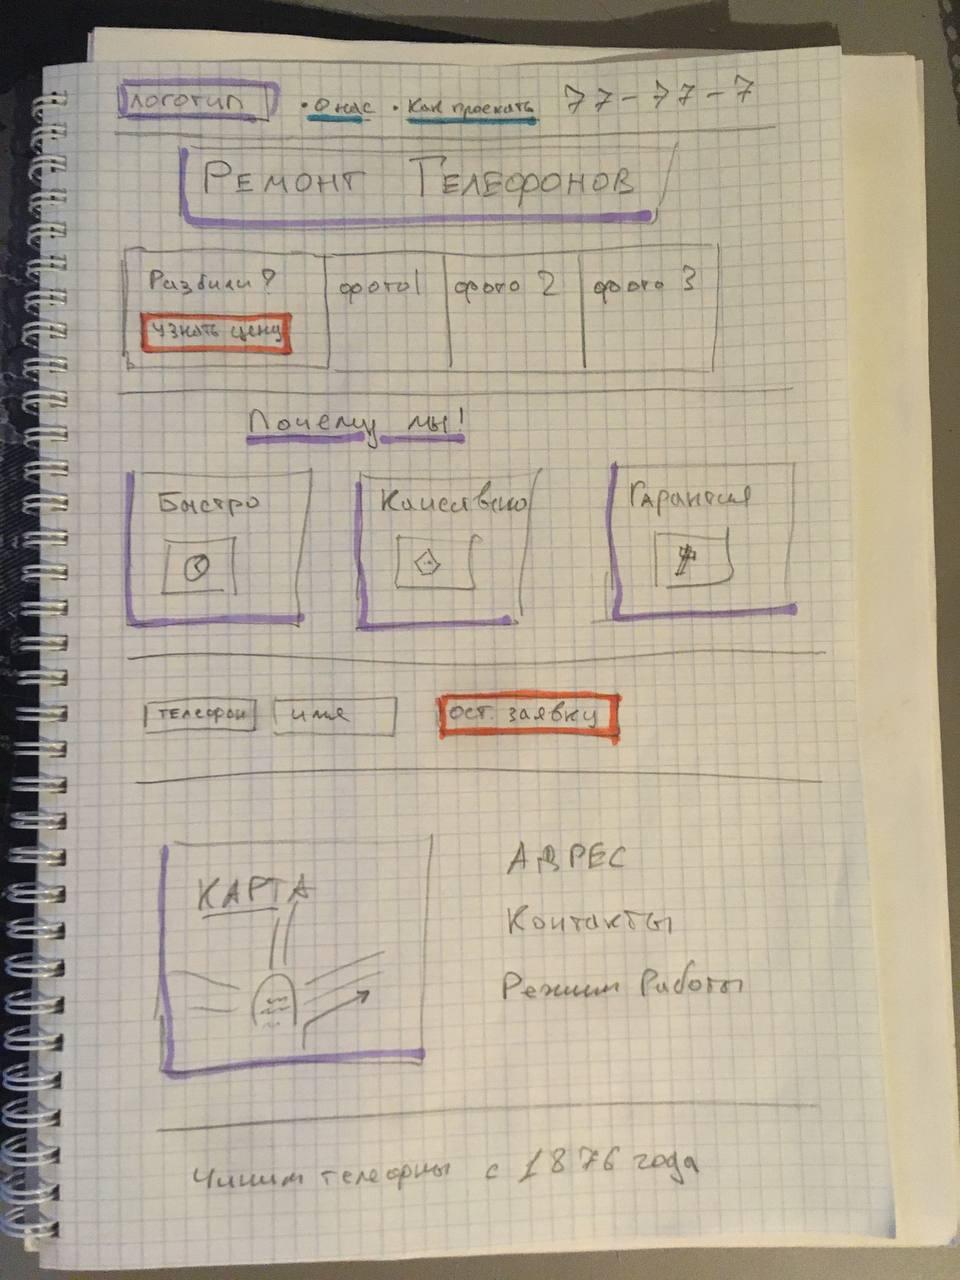 ЛОГОТИП • О нас • Как проехать 77-77-7
Ремонт Телефонов
Разбили? фото 1 фото 2 фото 3
узнать цену
Почему мы!
Быстро Качествено Гарантия
телефон имя ост. заявку
КАРТА
АДРЕС
Контакты
Режим Работы
Чиним телефоны с 1876 года